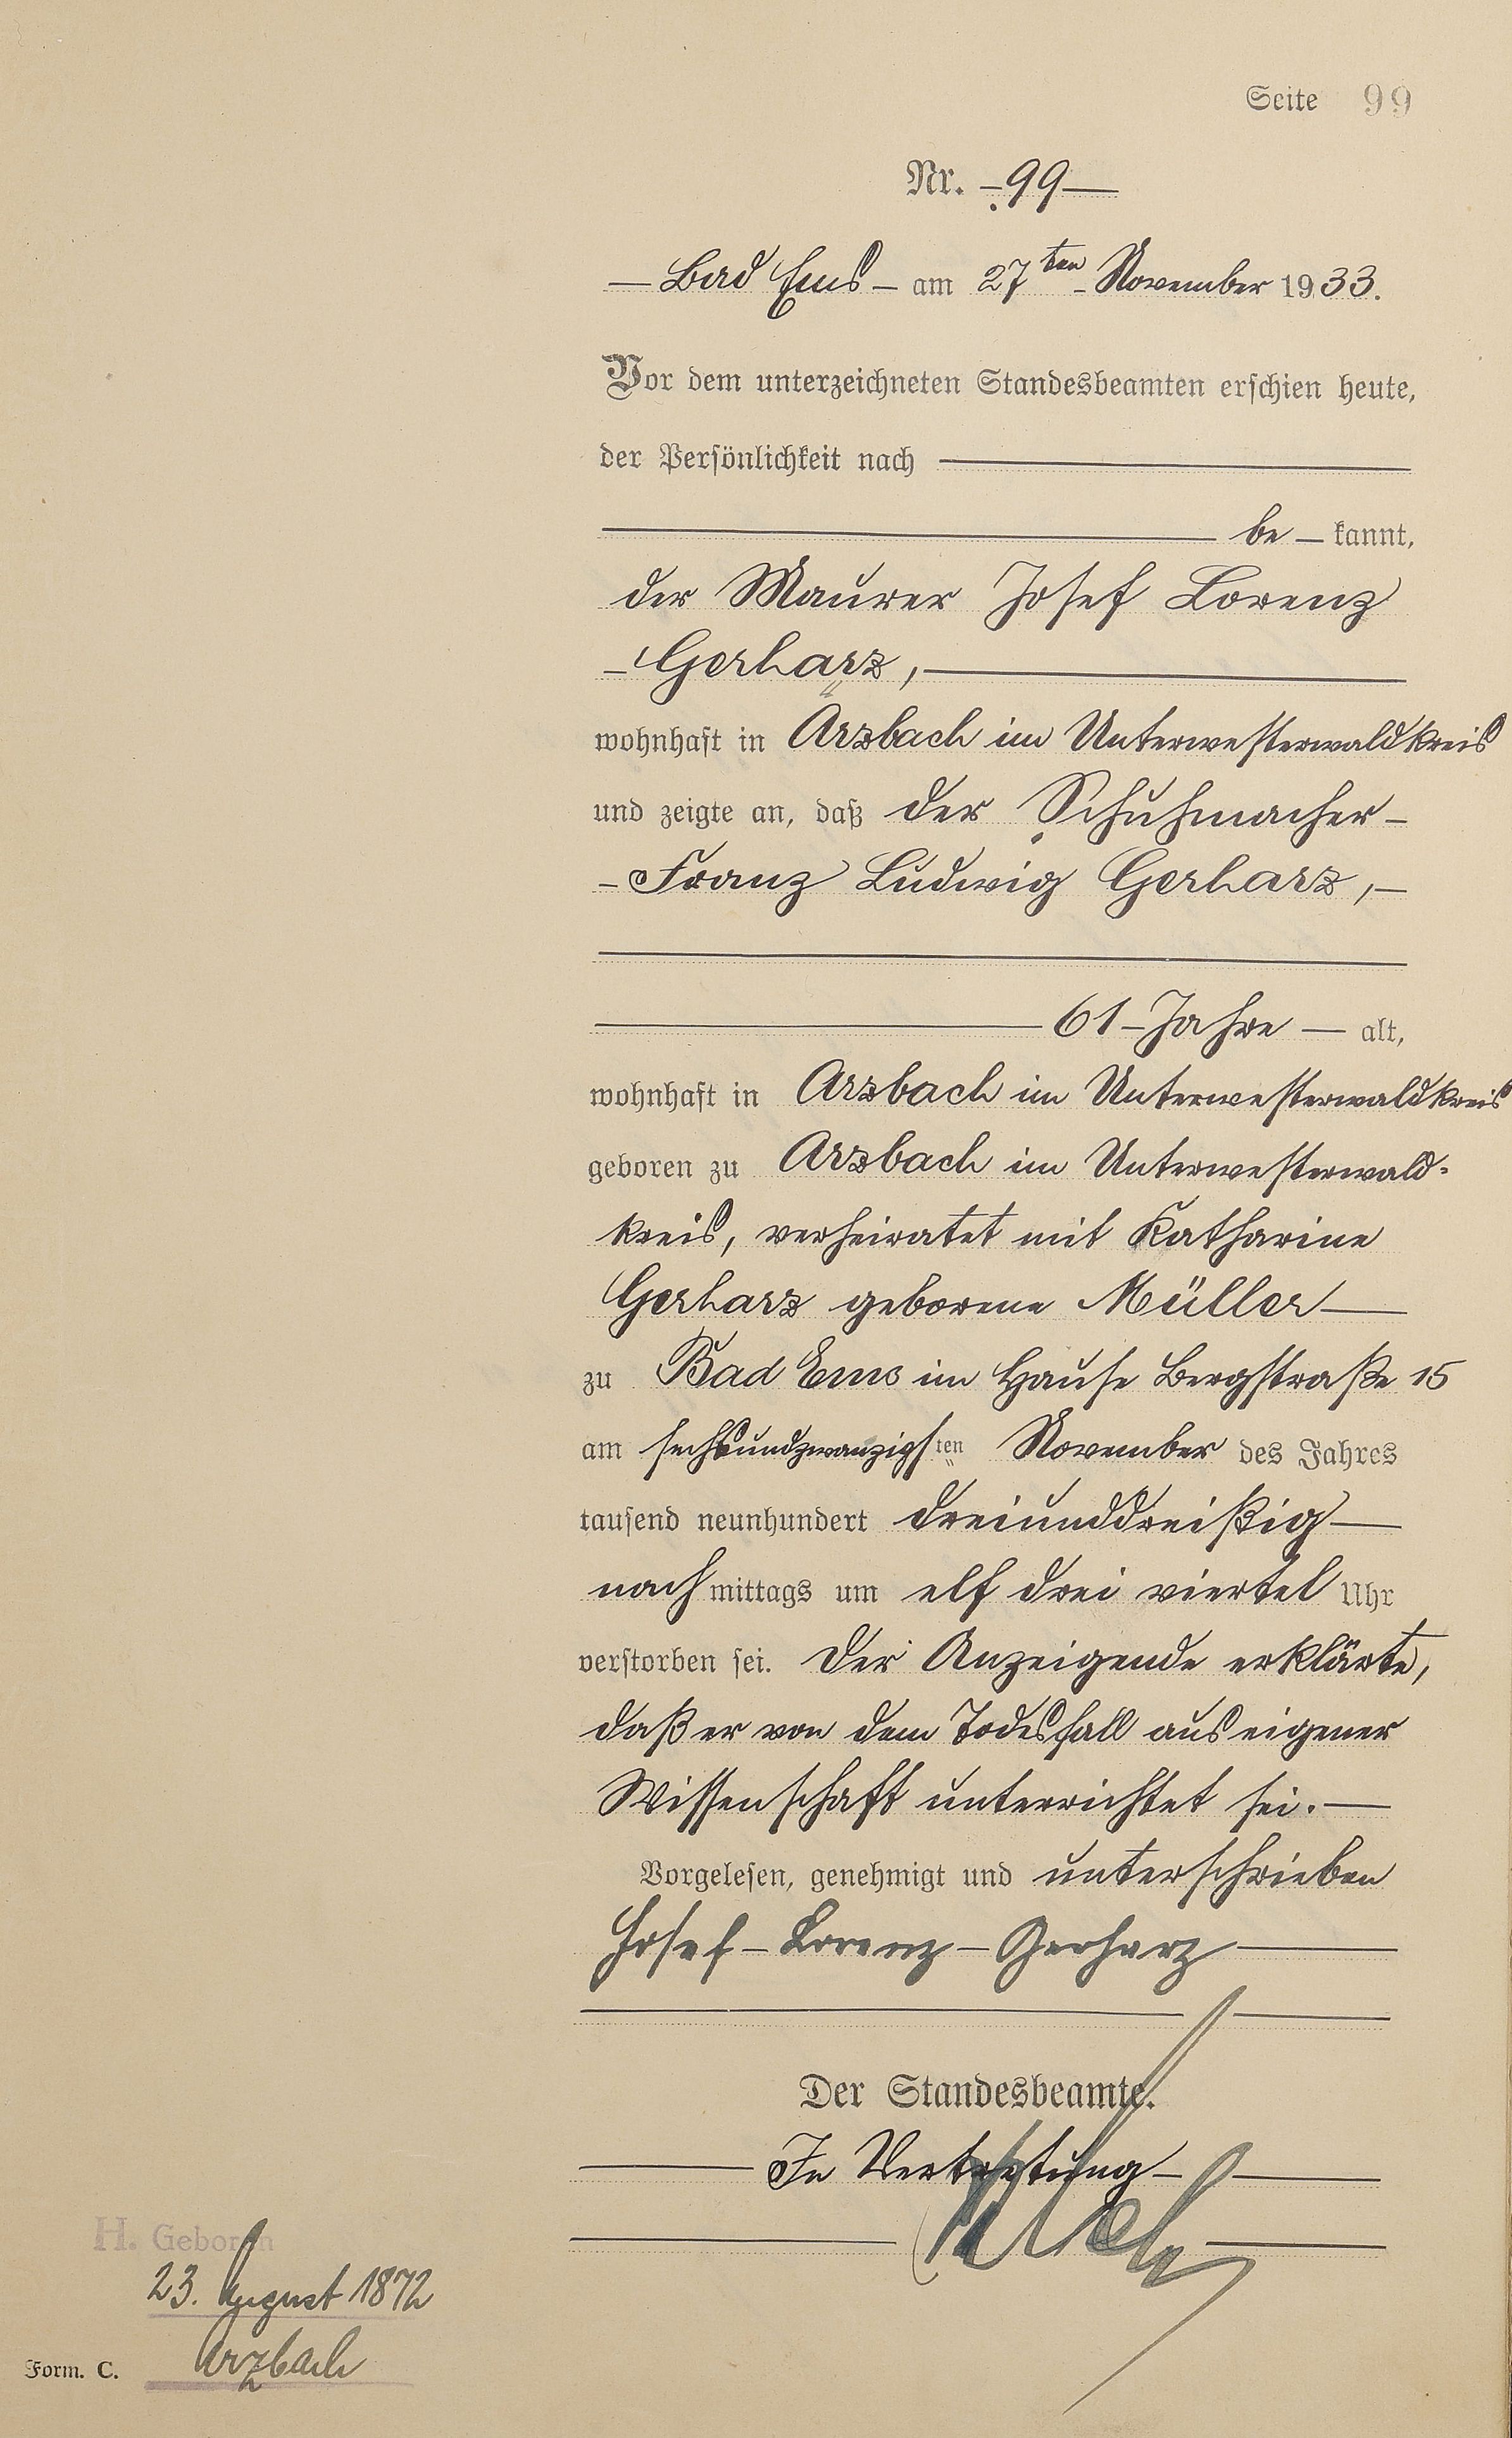 Seite 99
Nr. 99
Bad Ems am 27ten November 1933.
Vor dem unterzeichneten Standesbeamten erschien heute,
der Persönlichkeit nach
be kannt,
der Maurer Josef Lorenz
Gerharz,
wohnhaft in Arzbach im Unterwesterwaldkreis
und zeigte an, daß der Schuhmacher
Franz Ludwig Gerharz,
61 Jahre alt,
wohnhaft in Arzbach im Unterwesterwaldkreis
geboren zu Arzbach im Unterwesterwald-
kreis, verheiratet mit Katharine
Gerharz geborene Müller
zu Bad Ems im Hause Bergstraße 15
am sechsundzwanzigsten November des Jahres
tausend neunhundert dreiunddreißig
nachmittags um elf drei viertel Uhr
verstorben sei. Der Anzeigende erklärte,
daß er von dem Todesfall aus eigener
Wissenschaft unterrichtet sei.
Vorgelesen, genehmigt und unterschrieben
Josef-Lorenz-Gerharz
Der Standesbeamte.
In Vertretung
H. Geboren
23. August 1872
Arzbach
Form. C.